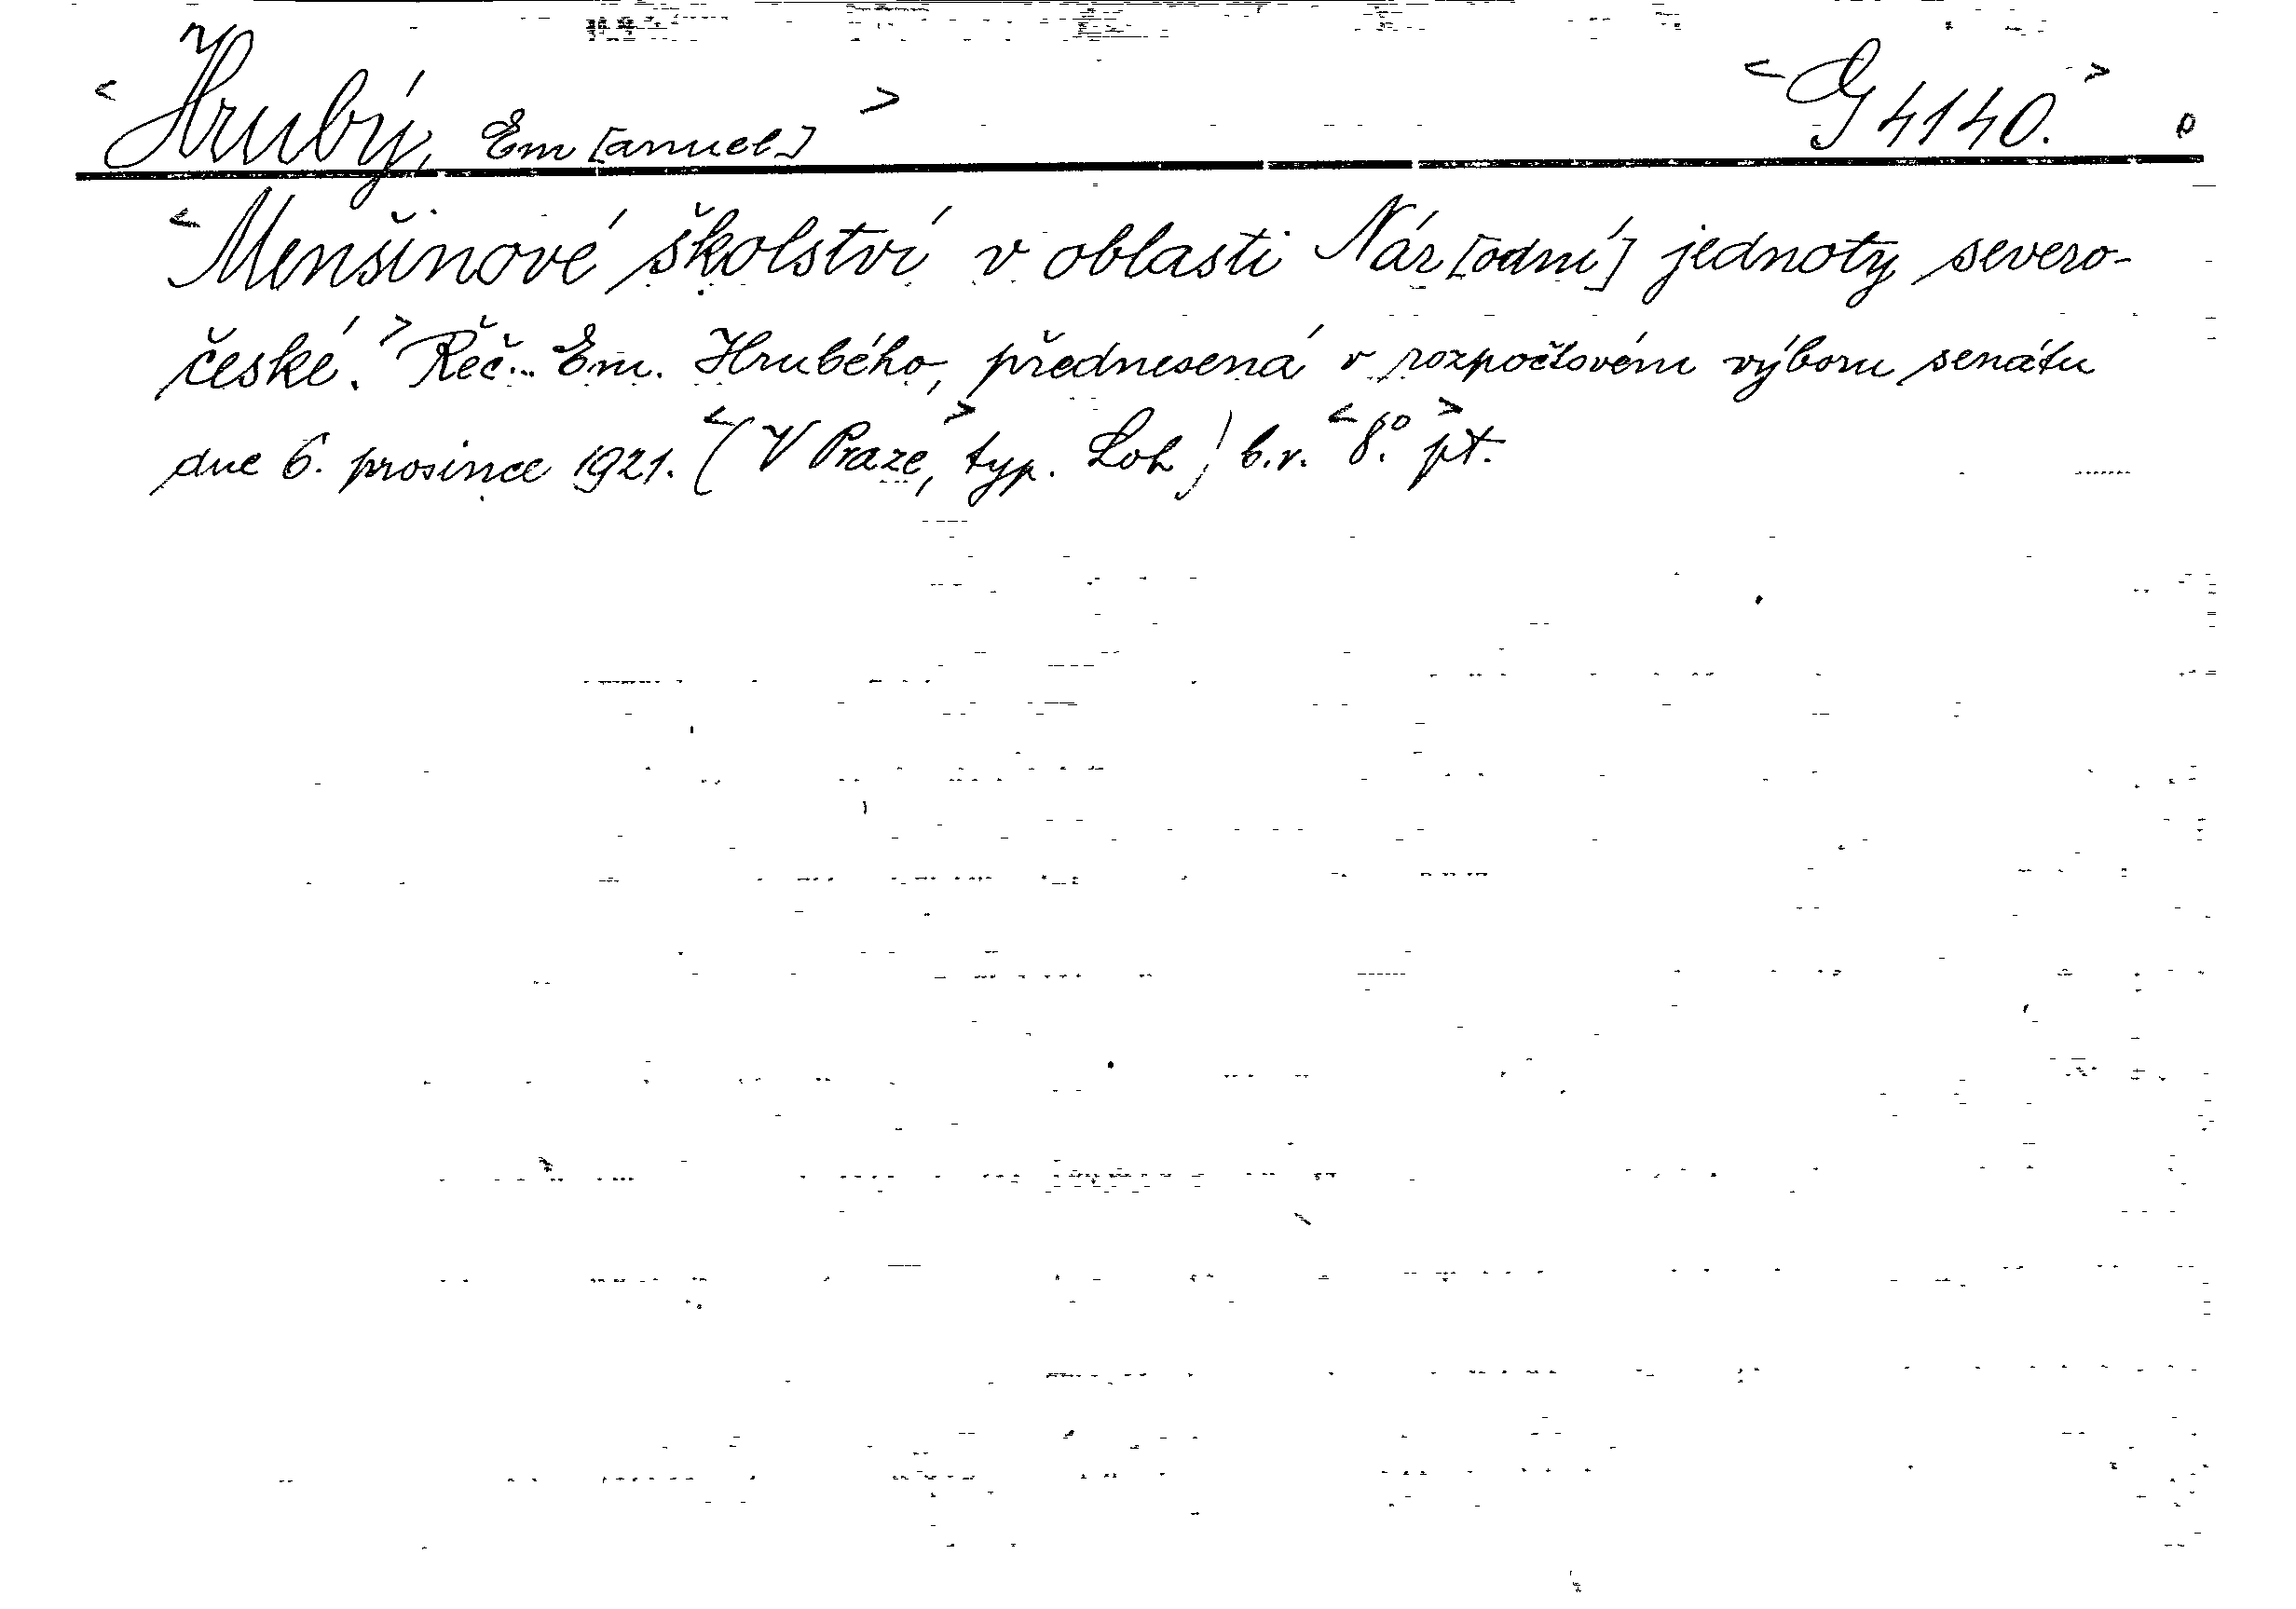 < Hrubý, Em[anuel] > < G 4140. >
< Menšinové školství v oblasti Nár[odní] jednoty severo-
české. > Řeč... Em. Hrubého, přednesená v rozpočtovém výboru senátu
dne 6. prosince 1921. < (V Praze, > typ. Loh) b.r. < 8.° > pt.